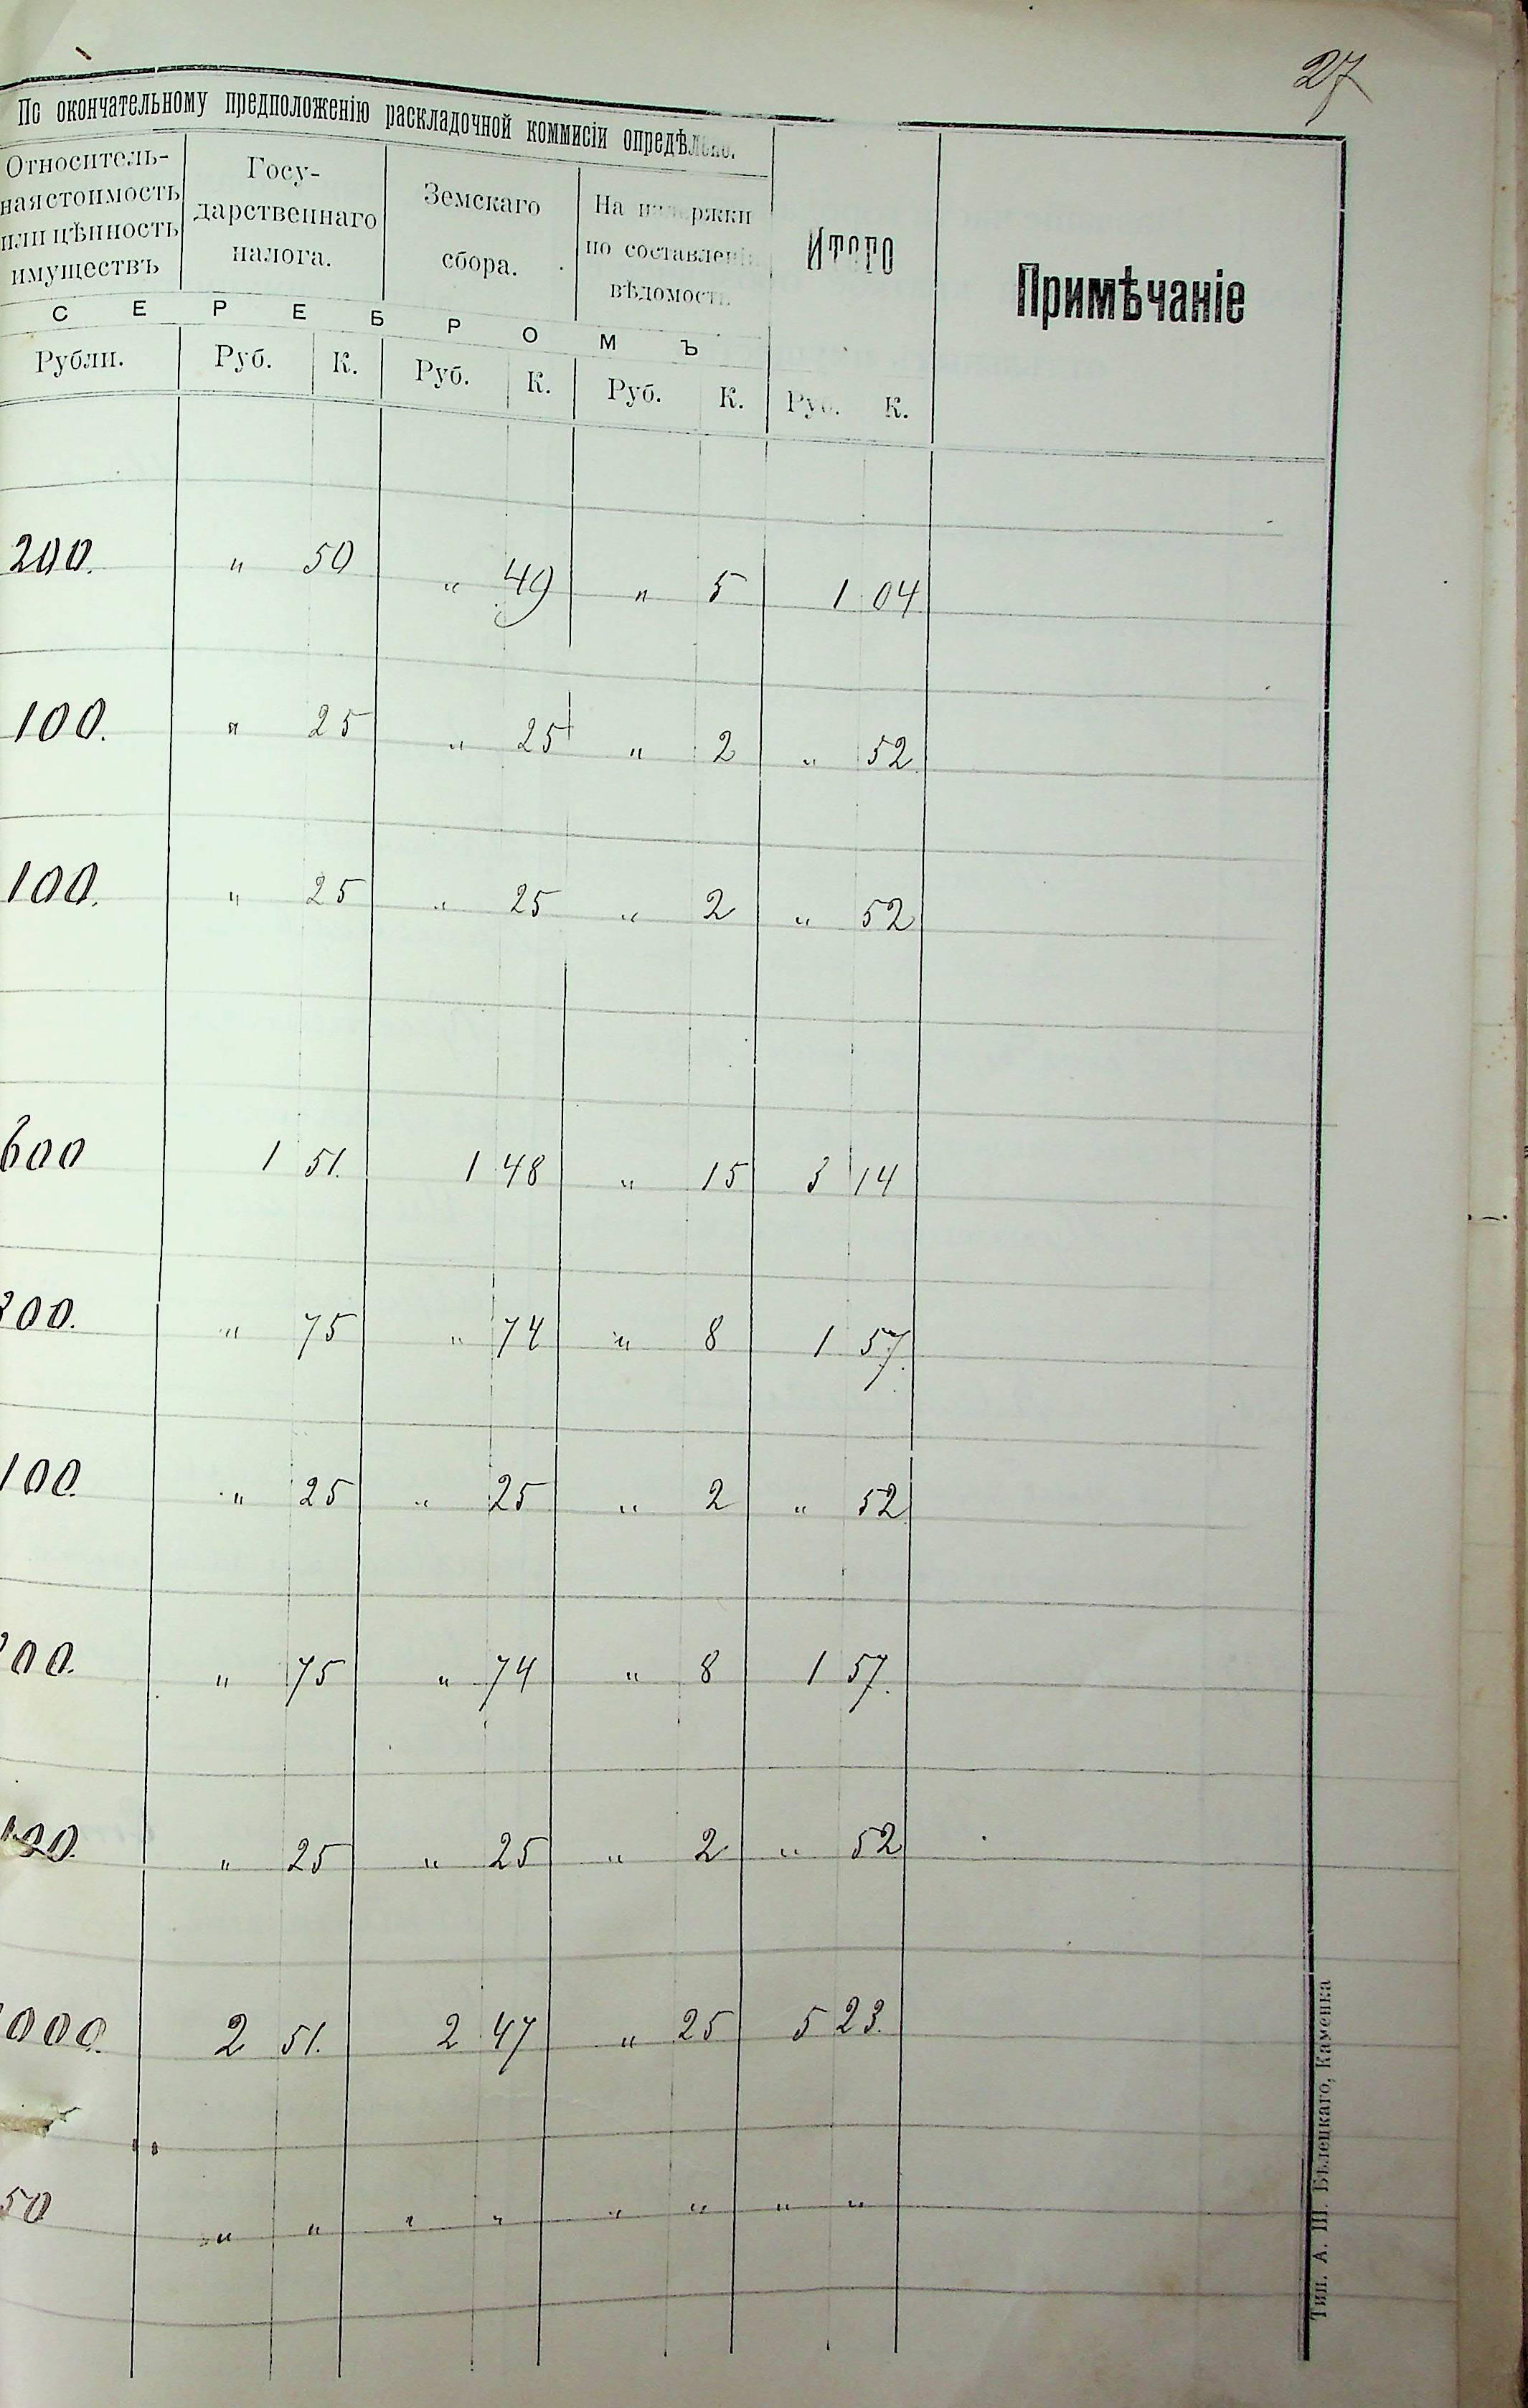 27
По окончательному предположенію раскладочной коммисіи опредѣлено.
Относитель- Госу- Земскаго На издержки ИТОГО Примѣчаніе
ная стоимость дарственнаго сбора. по составленію
или цѣнность налога. вѣдомости
имуществъ
СЕРЕБРОМЪ
Рубли. Руб. К. Руб. К. Руб. К. Руб. К.
200. " 50 " 49 " 5 1 04
100. " 25 " 25 " 2 " 52
100. " 25 " 25 " 2 " 52
600 1 51. 1 48 " 15 3 14
300. " 75 " 74 " 8 1 57.
100. " 25 " 25 " 2 " 52
300. " 75 " 74 " 8 1 57.
100. " 25 " 25 " 2 " 52
1000. 2 51. 2 47 " 25 5 23.
50 " " " " " " " "
Тип. А. Ш. Бѣлецкаго, Каменка